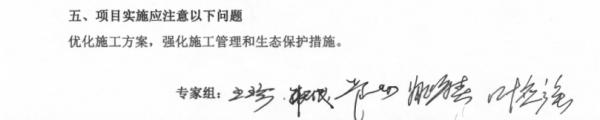 五、项目实施应注意以下问题
优化施工方案，强化施工管理和生态保护措施。
专家组：